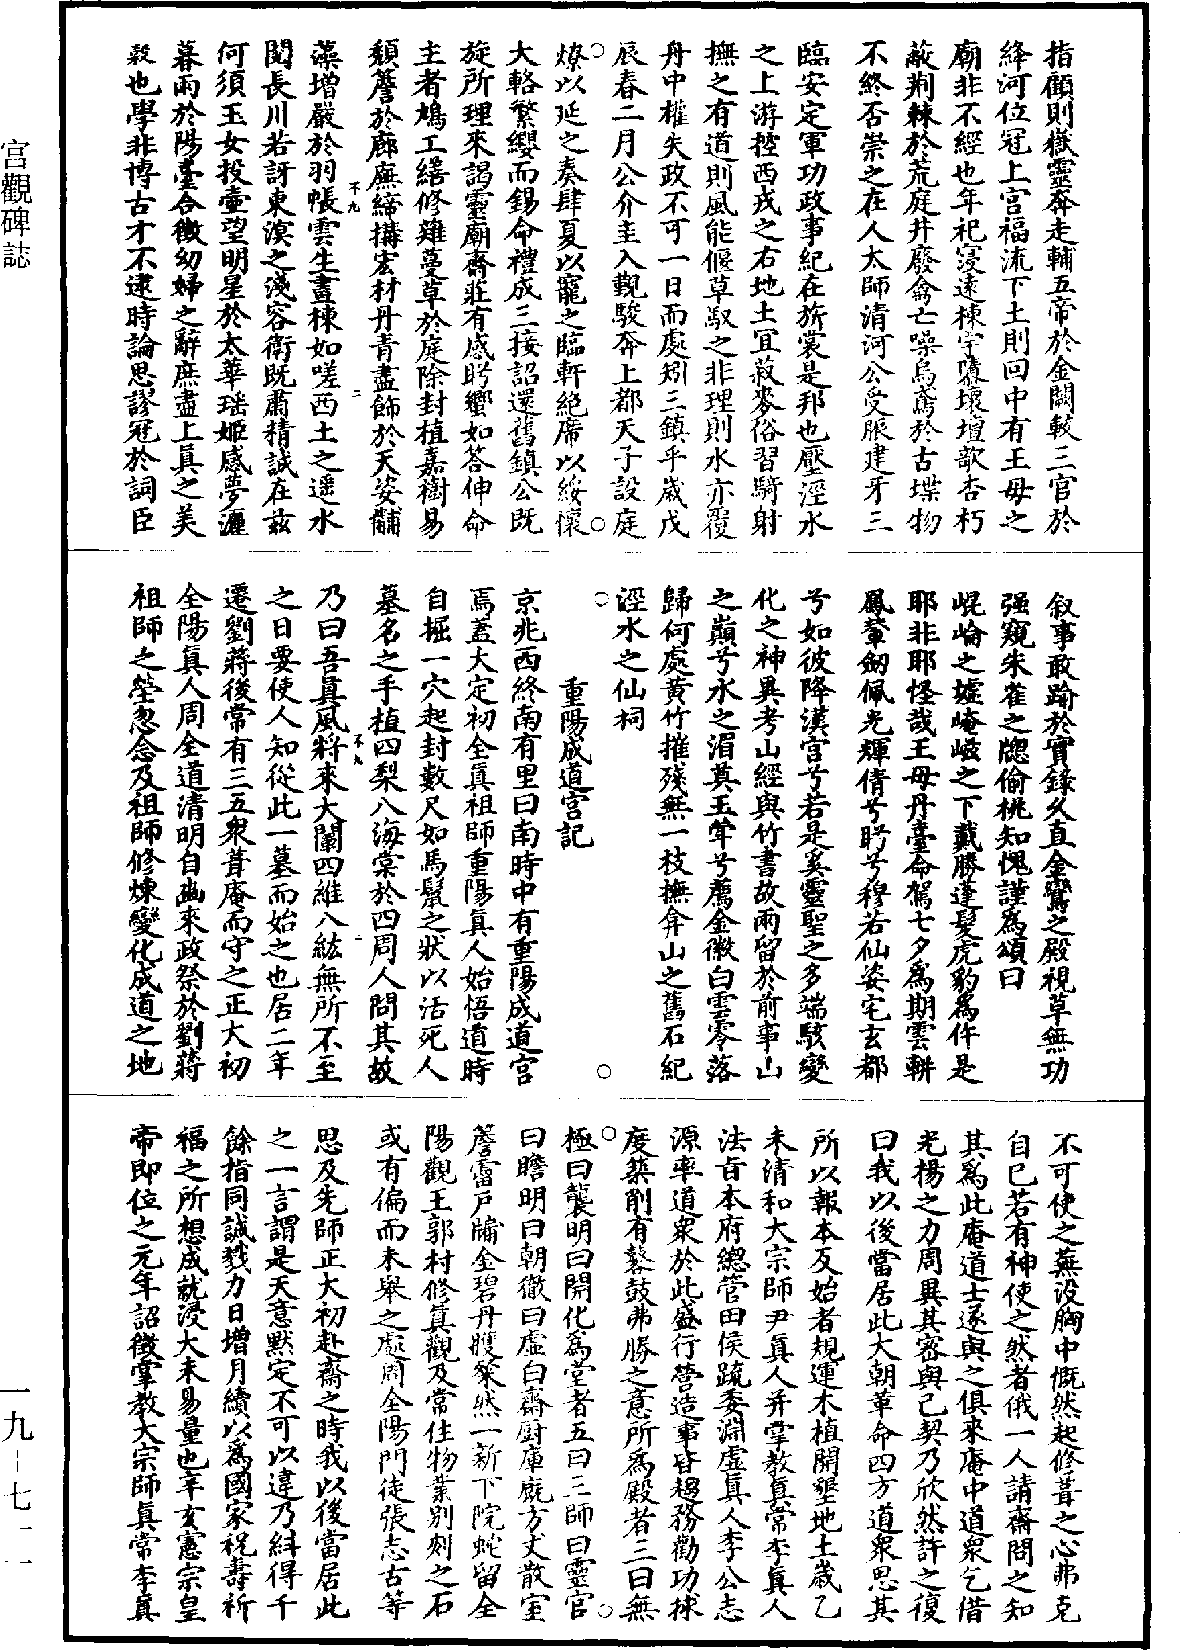 指顧則嶽靈奔走輔五帝於金闕較三官於
絳河位冠上宮福流下土則回中有王母之
廟非不經也年祀寖遠棟宇隳壞壇欹杏朽
蔽荆棘於荒庭井廢禽亡噪烏鳶於古堞物
不終否崇之在人大師清河公受脤建牙三
臨安定軍功政事紀在旂裳是邦也壓涇水
之上游控西戎之右地土宜菽麥俗習騎射
撫之有道則風能偃草馭之非理則水亦覆
舟中權失政不可一日而處矧三鎮乎歲戊
辰春二月公介圭入覲駿奔上都天子設庭
燎以延之奏肆夏以寵之臨軒絕席以綏懷
大輅繁纓而錫命禮成三接詔還舊鎮公旣
旋所理來謁靈廟齋莊有感肸蠁如答伸命
主者鳩工繕修薙蔓草於庭除封植嘉樹易
頹簷於廊廡締搆宏材丹青盡飾於天姿黼
藻增嚴於羽帳雲生畫棟如嗟西土之遥水
閱長川若訝東溟之淺容衛既肅精誠在玆
何須玉女投壺望明星於太華瑶姬感夢灑
暮雨於陽臺合徵幼婦之辭庶盡上真之美
穀也學非博古才不逮時論思謬冠於詞臣
叙事敢踰於實錄久直金鑾之殿視草無功
强窺朱雀之牕偷桃知愧謹為頌曰
崐崘之墟崦嵫之下戴勝蓬髮虎豹為仵是
耶非耶怪哉王母丹臺命駕七夕為期雲輧
鳳輦劒佩光輝倩兮盻兮穆若仙姿宅玄都
兮如彼降漢宮兮若是奚靈聖之多端駭變
化之神異考山經與竹書故兩留於前事山
之巔兮水之湄奠玉斝兮薦金徽白雲零落
歸何處黄竹摧殘無一枝撫弇山之舊石紀
涇水之仙祠
重陽成道宮記
京兆西終南有里曰南時中有重陽成道宮
焉蓋大定初全真祖師重陽真人始悟道時
自掘一穴起封數尺如馬鬣之狀以活死人
墓名之手植四梨八海棠於四周人問其故
乃曰吾真風將來大闡四維八紘無所不至
之日要使人知從此一墓而始之也居二年
遷劉蔣後常有三五衆葺庵而守之正大初
全陽真人周全道清明自幽來政祭於劉蔣
祖師之塋忽念及祖師修煉變化成道之地
不可使之蕪没胸中慨然起修葺之心弗克
自已若有神使之然者俄一人請齋問之知
其為此庵道士遂與之俱來庵中道衆乞借
光揚之力周異其密與己契乃欣然許之復
曰我以後當居此大朝革命四方道衆思其
所以報本反始者規運木植開墾地土歲乙
未清和大宗師尹真人并掌教真常李真人
法旨本府總管田侯疏委淵虚真人李公志
源率道衆於此盛行營造事皆趨務勸功捄
度築削有鼛鼓弗勝之意所為殿者三曰無
極曰襲明曰開化為堂者五曰三師曰靈官
曰瞻明曰朝徹曰虚白齋厨庫廐方丈散室
簷霤戸牖金碧丹雘粲然一新下院蛇留全
陽觀王郭村修真觀及常住物業别刻之石
或有偏而未舉之處周全陽門徒張志古等
思及先師正大初赴齋之時我以後當居此
之一言謂是天意默定不可以違乃糾得千
餘指同誠戮力日增月續以為國家祝壽祈
福之所想成就浸大未易量也辛亥憲宗皇
帝即位之元年詔徵掌教大宗師真常李真
宮觀碑誌
一九—七一一